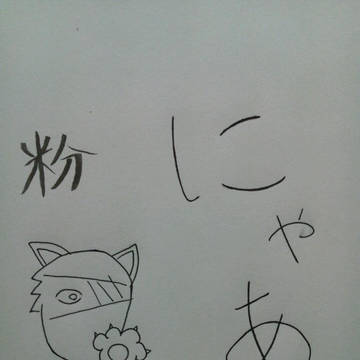 にゃあ
粉